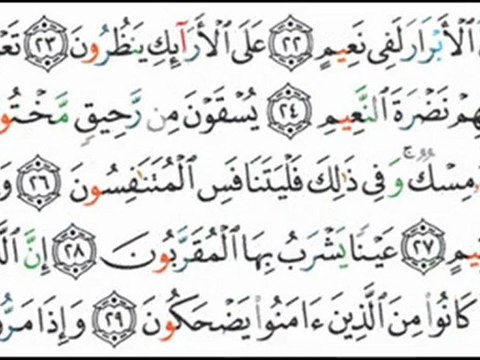 الْأَبْرَارَ لَفِى نَعِيمٍ ٢٢ عَلَى الْأَرَآئِكِ يَنظُرُونَ ٢٣ تَعْ
هِمْ نَضْرَةَ النَّعِيمِ ٢٤ يُسْقَوْنَ مِن رَّحِيقٍ مَّخْتُو
مِسْكٌ ۚ وَفِى ذَٰلِكَ فَلْيَتَنَافَسِ الْمُتَنَافِسُونَ ٢٦ وَ
يمٍ ٢٧ عَيْنًا يَشْرَبُ بِهَا الْمُقَرَّبُونَ ٢٨ إِنَّ الَّ
كَانُوا۟ مِنَ الَّذِينَ ءَامَنُوا۟ يَضْحَكُونَ ٢٩ وَإِذَا مَرُّو